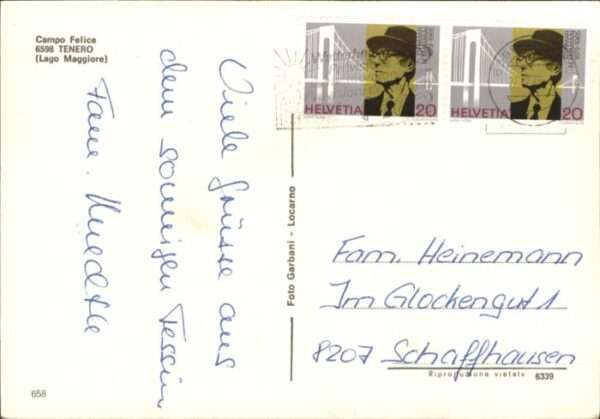 Campo Felice
6598 TENERO
(Lago Maggiore)
Viele Grüsse aus
dem sonnigen Tessin
Fam.
Foto Garbani - Locarno
HELVETIA 20
HELVETIA 20
Fam. Heinemann
Im Glockengut 1
8207 Schaffhausen
Riproduzione vietata 6339
658